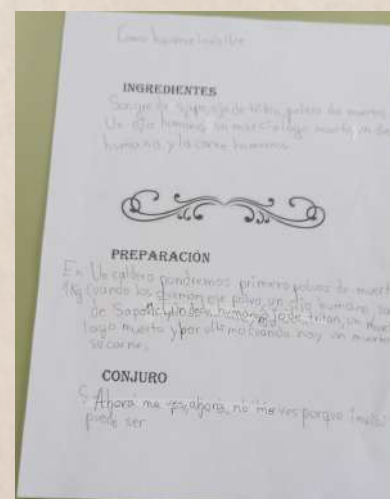 Como hacerme invisible
INGREDIENTES
Sangre de sapo, ojo de tritón, polvos de muerto
Un ojo humano, un murcielago muerto, un de
humano, y la carne humana.
PREPARACIÓN
En Un caldero pondremos primero polvos de muert
1Kg Cuando los polvo, un ojo humano,
de Sapo, humano, ojo de tritan, un mur
lago muerto y por ultimo cuando hay un muerto
su carne.
CONJURO
Ahora me ves, ahora no me ves porque invisi
puedo ser